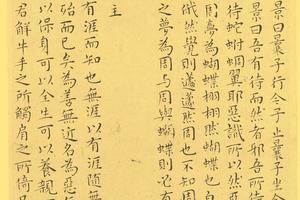 景曰曩子行今子止曩子坐今
景曰吾有待而然者邪吾
待蛇蚹蜩翼耶惡識所以然惡
周夢為蝴蝶栩栩然蝴蝶也自
俄然覺則蘧蘧然周也不知周
之夢為周与周與蝴蝶則必有
主
有涯而知也無涯以有涯隨無
殆而已矣為善無近名為惡
以保身可以全生可以養親
君解牛手之所觸肩之所倚足